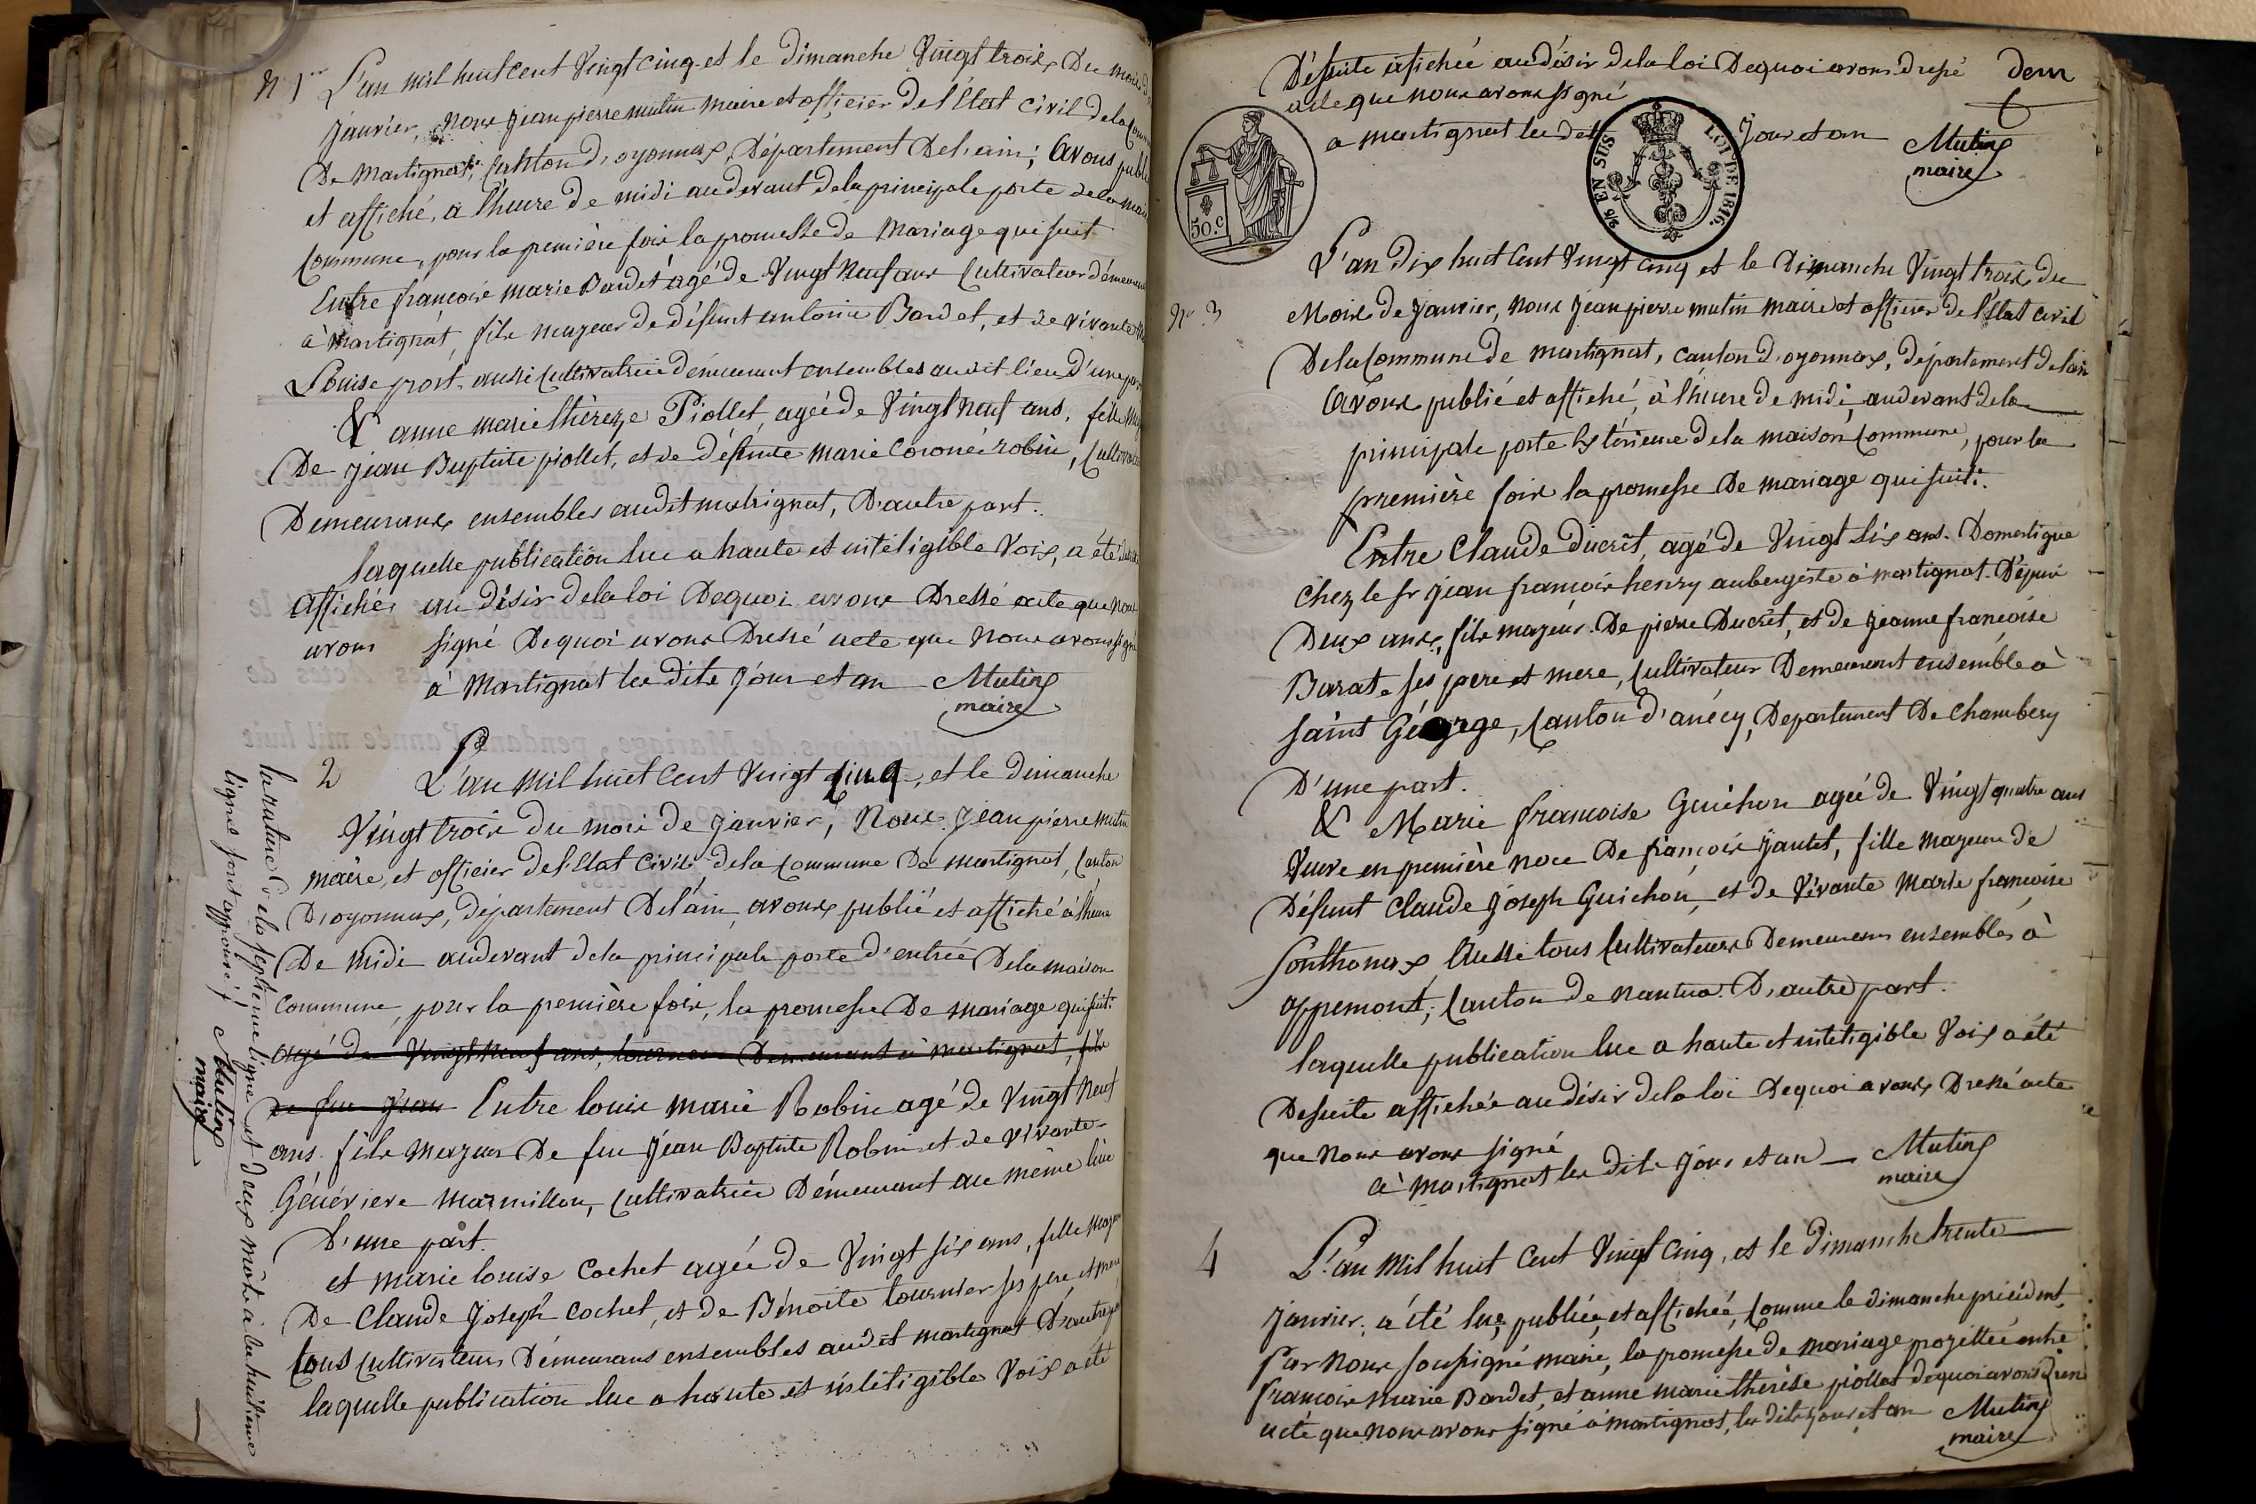 N° 1er L'an mil huit cent Vingt cinq et le dimanche Vingt trois Du mois de
janvier, Nous jean pierre mutin maire et officier de l'Etat civil de la Com
De Martignat, Canton d'oyonnax, Département De l'ain; Avons publié
et affiché, a l'heure De midi au devant de la principale porte de la mais
Commune, pour la première fois la promesse de Mariage qui suit
Entre françois marie Bardet agé de Vingt Neuf ans Cultivateur démeurant
à Martignat, fils mageur de défunt antoine Bardet, et de vivante
Louise prost, aussi Cultivatrice démeurant ensembles au dit lieu D'une part
& anne marie thèreze Piollet, agée de Vingt Neuf ans, fille
De jean Baptiste piollet, et de défunte marie Coronée robin,
Demeurans ensembles au dit martignat, D'autre part.
laquelle publication lue a haute et inteligible Voix, a été
affichée au désir de la loi De quoi avons Dressé acte que nous
avons signé De quoi avons Dressé acte que nous avons signé
à Martignat les dits jour et an Mutin
maire
2 L'an mil huit Cent Vingt cinq, et le dimanche
Vingt trois du mois de janvier, Nous Jean pierre mutin
maire, et officier de l'Etat Civil de la Commune De martignat, Canton
D'oyonnax, département De l'ain, avons publié et affiché à l'heure
De Midi au devant de la principale porte d'entrée De la maison
Commune, pour la première fois, la promesse De mariage qui suit:
agé de Vingt Neuf ans, Demeurant à martignat, fils
de feu jean Entre louis marie Robin agé de Vingt Neuf
ans, fils mageur De feu jean Baptiste Robin et de vivante
Génévieve Marmillon, Cultivatrice Démeurant au même lieu
D'une part.
et marie louise Cochet agée de Vingt six ans, fille mageure
De Claude Joseph Cochet, et de Bénoite tournier ses pere et mere
tous Cultivateurs Démeurans ensembles au dit martignat D'autre part
laquelle publication lue a haute et inteligible Voix a été
la rature de la septieme ligne et deux mots à la huitieme
ligne sont approuvé
Mutin
maire
De suite afichée au désir de la loi De quoi avons dressé
acte que nous avons signé
a martignat les dits jour et an Mutin
maire
50.C
EN SUS LOI DE 1816.
N° 3
L'an dix huit Cent Vingt cinq et le Dimanche Vingt trois du
Mois de janvier, nous jean pierre mutin maire et officier de l'Etat civil
De la Commune de martignat, canton d'oyonnax, département de l'ain
Avons publié et affiché, à l'heure de midi, au devant de la
principale porte Extérieure de la maison Commune, pour la
première fois la promesse De mariage qui suit:
Entre Claude Ducrêt, agé de Vingt six ans Domestique
Chez le sr jean françois henry aubergiste à martignat Dépuis
Deux ans, fils mageur De pierre Ducrêt, et de jeanne françoise
Burat ses pere et mere, Cultivateur Demeurant ensemble à
saint Géorge, Canton d'anécy, Departement De Chambery
D'une part.
& Marie françoise Guichon agée de Vingt quatre ans
Veuve en première noce De françois jantet, fille mageure de
Défunt Claude Joseph Guichon, et de Vivante Marie françoise
Sonthonax Aussi tous Cultivateurs Demeurans ensembles à
appremont, Canton de nantua D'autre part.
laquelle publication lue a haute et inteligible Voix a été
De suite affichée au désir de la loi De quoi avons Dressé acte
que Nous avons signé
à Martignat les dits jour et an Mutin
maire
4 L'an Mil huit Cent Vingt cinq, et le Dimanche trente
janvier, a été lue, publiée, et affichée, Comme le dimanche précédent,
Par Nous soussigné maire, la promesse de mariage projettée entre
françois marie Bardet, et anne marie thérèse piollet de quoi avons
acte que nous avons signé à martignat, les dits jour et an Mutin
maire